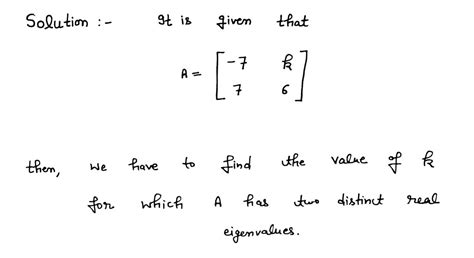 Solution :- It is given that
A = [ -7 k
7 6 ]
then, we have to find the value of k
for which A has two distinct real
eigenvalues.